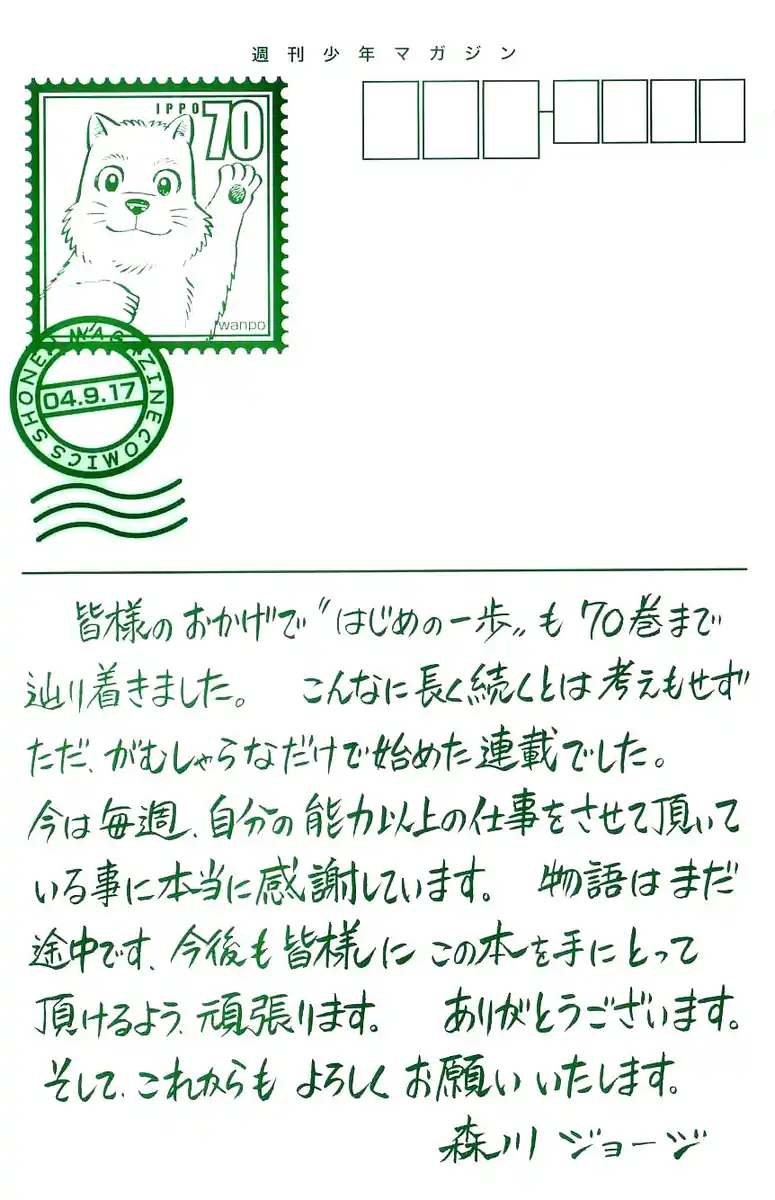 週刊少年マガジン
IPPO 70
wanpo
SHONEN MAGAZINE COMICS
04.9.17
皆様のおかげで〝はじめの一歩〟も70巻まで
辿り着きました。 こんなに長く続くとは考えもせず
ただ、がむしゃらなだけで始めた連載でした。
今は毎週、自分の能力以上の仕事をさせて頂いて
いる事に本当に感謝しています。 物語はまだ
途中です、今後も皆様にこの本を手にとって
頂けるよう、頑張ります。 ありがとうございます。
そして、これからもよろしくお願いいたします。
森川ジョージ